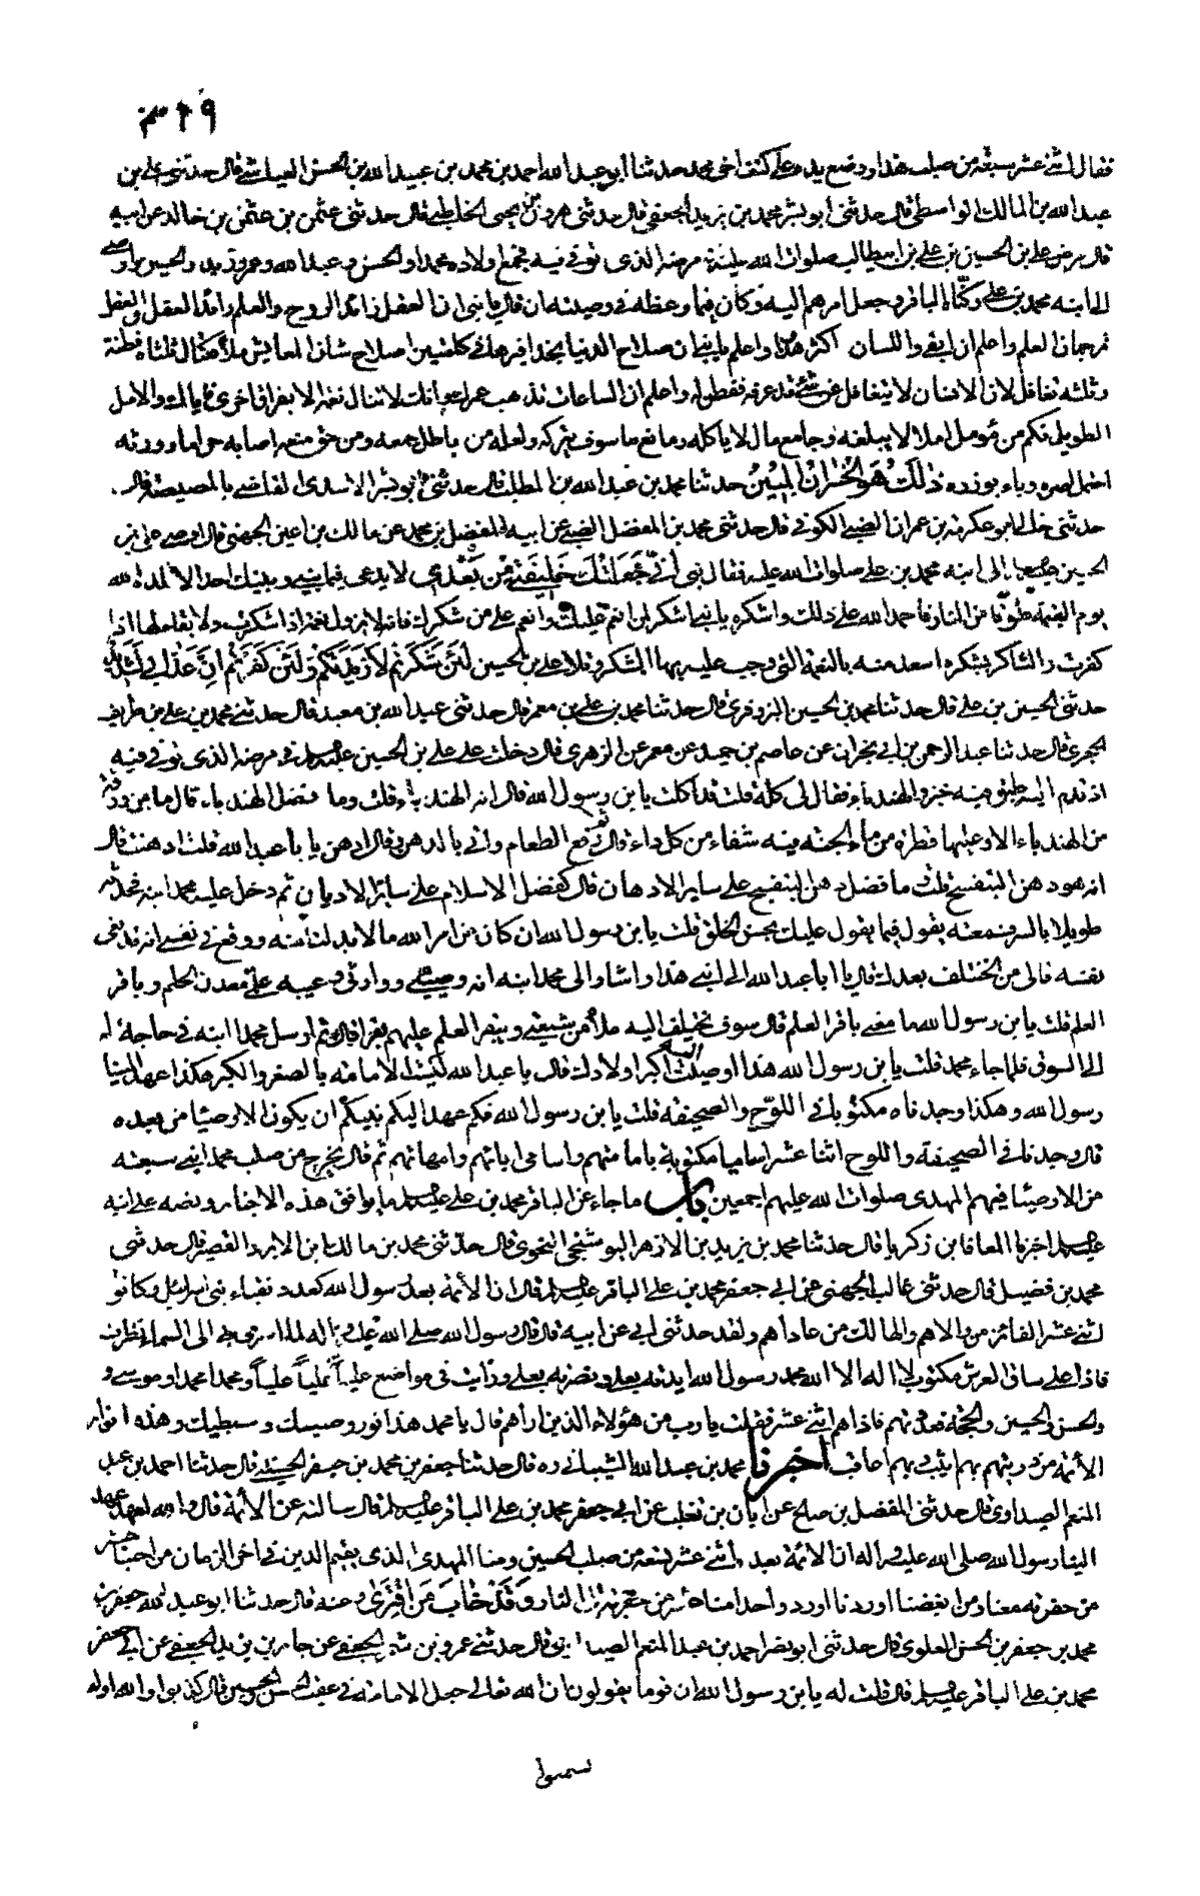 ٣٢٩
فقال اثنی عشر سبعة من صلب هذا ووضع یده علی کتف اخی محمد حدثنا ابو عبد الله احمد بن محمد بن عبید الله بن الحسن العیاشی قال حدثنی علی بن
عبد الله بن المالک الواسطی قال حدثنی ابو بشر محمد بن یزید الجعفی قال حدثنی هرون بن یحیی الخاطبی قال حدثنی عثمن بن عثمن بن خالد عن ابیه
قال مرض علی بن الحسین بن علی بن ابیطالب صلوات الله علیه مرضه الذی توفی فیه فجمع اولاده محمدا والحسن و عبد الله و عمر و زید والحسین واوصی
الی ابنه محمد بن علی وکنّاه الباقر وجعل امرهم الیه وکان فیما وعظه فی وصیته ان قال یا بنی ان العقل رائد الروح والعلم رائد العقل والعقل
ترجمان العلم واعلم ان العلم ابقی واللسان اکثر هذرا واعلم یا بنی ان صلاح الدنیا بحذافیرها فی کلمتین اصلاح شان المعایش ملأ مکیال ثلثاه فطنة
وثلثه تغافل لان الانسان لا یتغافل عن شئ قد عرفه ففطن له واعلم ان الساعات تذهب عمرک وانک لا تنال نعمة الا بفراق اخری فایاک والامل
الطویل فکم من مؤمل املا لا یبلغه وجامع مال لا یاکله ومانع ما سوف یترکه ولعله من باطل جمعه ومن حق منعه اصابه حراما وورثه
احتمل اصره وباء بوزره ذٰلِکَ هُوَ الْخُسْرَانُ الْمُبِینُ حدثنا محمد بن عبد الله بن المطلب قال حدثنی ابو بشر الاسدی القاضی بالمصیصة قال
حدثنی خالی ابو عکرمة بن عمران الضبی الکوفی قال حدثنی محمد بن المفضل الضبی عن ابیه المفضل بن محمد عن مالک بن اعین الجهنی قال اوصی علی بن
الحسین ابنه محمد بن علی صلوات الله علیه فقال بنی انّی جَعَلْتُکَ خَلِیفَتِی مِن بَعْدِی لا یدعی فیما بینی وبینک احد الا قلده الله
یوم القیمة طوقا من النار فاحمد الله علی ذلک واشکره یا بنی اشکر لمن انعم علیک وانعم علی من شکرک فانه لا تزول نعمة اذا شکرت ولا بقاء لها اذا
کفرت والشاکر بشکره اسعد منه بالنعمة التی وجب علیه بها الشکر وتلا علی بن الحسین لَئِنْ شَکَرْتُمْ لَأَزِیدَنَّکُمْ وَلَئِنْ کَفَرْتُمْ اِنَّ عَذَابِی لَشَدِیدٌ
حدثنی الحسین بن علی قال حدثنا محمد بن الحسین البزوفری قال حدثنا محمد بن علی بن معمر قال حدثنی عبد الله بن معبد قال حدثنی محمد بن علی بن طریف
الحجری قال حدثنا عبد الرحمن بن ابی نجران عن عاصم بن حمید عن معمر عن الزهری قال دخلت علی علی بن الحسین علیه السلام فی مرضه الذی توفی فیه
اذ قدم الیه طبق فیه خبز والهندباء فقال لی کله قلت قد اکلت یا بن رسول الله قال انه الهندباء قلت وما فضل الهندباء قال ما من ورقة
من الهندباء الا وعلیها قطرة من ماء الجنة فیه شفاء من کل داء قال ثم رفع الطعام واتی بالدهن فقال ادهن یا با عبد الله قلت ادهنت قال
انه هو دهن البنفسج قلت ما فضل دهن البنفسج علی سایر الادهان قال کفضل الاسلام علی سایر الادیان ثم دخل علیه محمد ابنه فحدثه
طویلا بالسر فسمعته یقول فیما یقول علیک بحسن الخلق قلت یا بن رسول الله ان کان من امر الله ما لا بد لنا منه ووقع فی نفسی انه قد نعی
نفسه فالی من یختلف بعدک قال یا ابا عبد الله الی ابنی هذا واشار الی محمد ابنه انه وصیی ووارثی وعیبة علمی معدن الحلم وباقر
العلم قلت یا بن رسول الله ما معنی باقر العلم قال سوف یختلف الیه ملأ من شیعتی ویبقر العلم علیهم بقرا قال ثم ارسل محمدا ابنه فی حاجة له
الی السوق فلما جاء محمد قلت یا بن رسول الله هذا اوصیت الیه اکبر اولادک قال یا عبد الله لیست الامامة بالصغر والکبر هکذا عهد الینا
رسول الله وهکذا وجدناه مکتوبا فی اللوح والصحیفة قلت یا بن رسول الله فکم عهد الیکم نبیکم ان یکون الاوصیا من بعده
قال وجدنا فی الصحیفة واللوح اثنا عشر اسامیا مکتوبة بامامتهم واسامی ابائهم وامهاتهم ثم قال یخرج من صلب محمد ابنی سبعة
من الاوصیا فیهم المهدی صلوات الله علیهم اجمعین باب ما جاء عن الباقر محمد بن علی علیه السلام ما یوافق هذه الاخبار ونصه علی ابنه
علیه السلام اخبرنا المعافا بن زکریا قال حدثنا محمد بن یزید بن الازهر البوشنجی النحوی قال حدثنی محمد بن مالک بن الابرد القصیر قال حدثنی
محمد بن فضیل قال حدثنی غالب الجهنی عن ابی جعفر محمد بن علی الباقر علیه السلام قال ان الأئمة بعد رسول الله کعدد نقباء بنی اسرائیل وکانوا
اثنی عشر الفائز من والاهم والهالک من عاداهم ولقد حدثنی ابی عن ابیه قال قال رسول الله صلی الله علیه وآله لما اسری بی الی السماء نظرت
فاذا علی ساق العرش مکتوب لا اله الا الله محمد رسول الله ایدته بعلی ونصرته بعلی ورایت فی مواضع علیاً علیاً علیاً ومحمدا محمدا وموسی و
والحسن والحسین والحجة فعددتهم فاذا هم اثنی عشر فقلت یا رب من هؤلاء الذین اراهم قال یا محمد هذا نور وصیک وسبطیک وهذه انوار
الأئمة من ذریتهم بهم اثیب وبهم اعاقب اخبرنا محمد بن عبد الله الشیبانی ره قال حدثنا جعفر بن محمد بن جعفر الحسنی قال حدثنا احمد بن عبد
المنعم الصیداوی قال حدثنی المفضل بن صالح عن ابان بن تغلب عن ابی جعفر محمد بن علی الباقر علیه السلام قال سالته عن الأئمة قال والله لعهد عهد
الینا رسول الله صلی الله علیه واله ان الأئمة بعده اثنی عشر تسعة من صلب الحسین ومنا المهدی الذی یقیم الدین فی اخر الزمان من احبنا حشر
من حفرته معنا ومن ابغضنا او ردنا او رد واحدا منا حشر من حفرته الی النار وَقَدْ خَابَ مَنِ افْتَرٰی وعنه قال حدثنا ابو عبد الله جعفر بن
محمد بن جعفر بن الحسن العلوی قال حدثنی ابو نصر احمد بن عبد المنعم الصیداوی قال حدثنی عمرو بن شمر الجعفی عن جابر بن یزید الجعفی عن ابی جعفر
محمد بن علی الباقر علیه السلام قال قلت له یا بن رسول الله ان قوما یقولون ان الله تعالی جعل الامامة فی عقب الحسن والحسین قال کذبوا والله اولم
یسمعوا